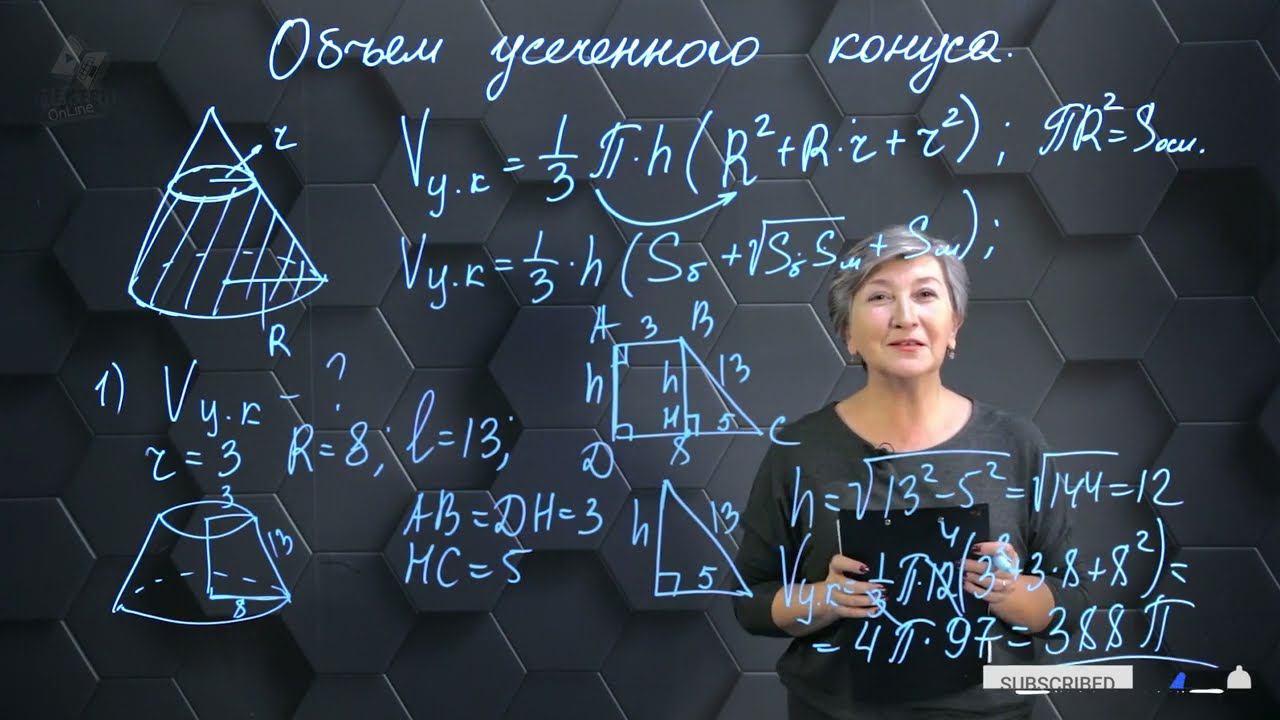 OnLine
Объем усеченного конуса.
r
R
V у.к = 1/3 П·h (R² + R·r + r²); ПR² = Sосн.
V у.к = 1/3·h (Sб + √Sб·Sм + Sм);
1) V у.к - ?
r = 3 R = 8; l = 13;
3
13
8
A 3 B
h h 13
D H 5 C
8
AB = DH = 3
HC = 5
h 13
5
h = √13² - 5² = √144 = 12
4
V у.к = 1/3 П·12 (3² + 3·8 + 8²) =
= 4П·97 = 388 П
SUBSCRIBED